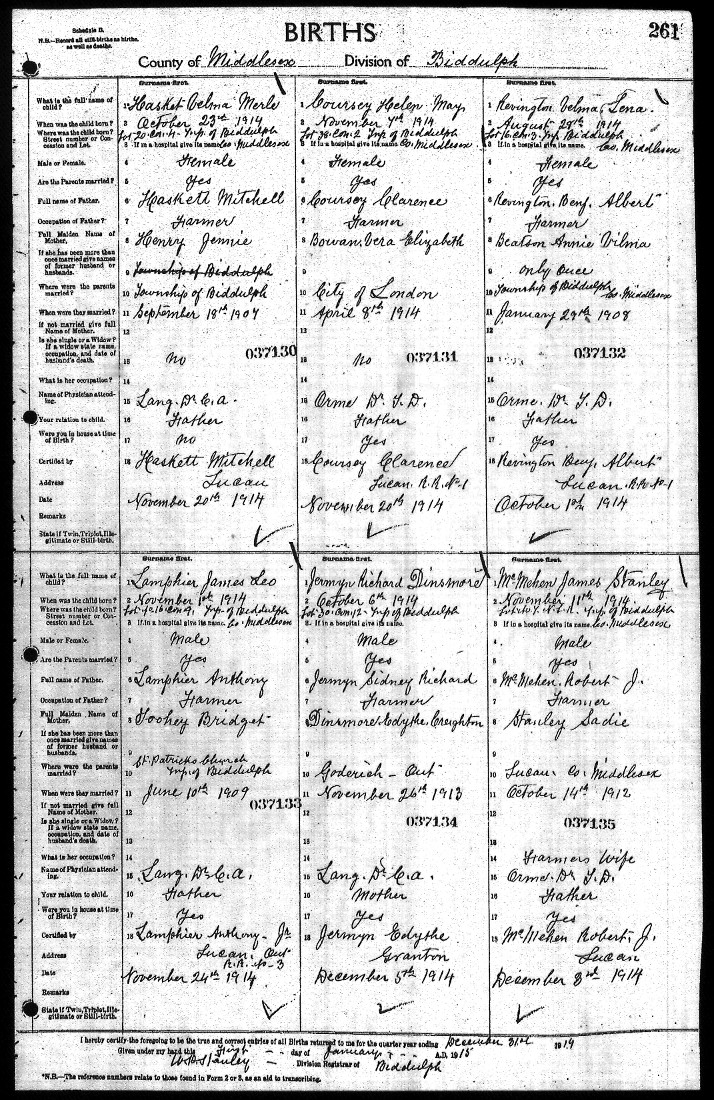 Schedule B.
N.B.—Record all still-births as births, as well as deaths.
BIRTHS
261
County of Middlesex Division of Biddulph
Surname first. Surname first. Surname first.
What is the full name of child? 1 Hasket Velma Merle 1 Coursey Helen May 1 Revington Velma Lena
When was the child born? 2 October 23rd 1914 2 November 7th 1914 2 August 29th 1914
Where was the child born? Street number or Concession and Lot. Lot 20 Con. 4 Twp. of Biddulph Lot 38 Con. 2 Twp of Biddulph Lot 16 Con. 3. Twp Biddulph
3 If in a hospital give its name. Co. Middlesex 3 If in a hospital give its name Co. Middlesex 3 Co. Middlesex
Male or Female. 4 Female 4 Female 4 Female
Are the Parents married? 5 Yes 5 Yes 5 Yes
Full name of Father. 6 Haskett Mitchell 6 Coursey Clarence 6 Revington Benj. Albert
Occupation of Father? 7 Farmer 7 Farmer 7 Farmer
Full Maiden Name of Mother. 8 Henry Jennie 8 Bowan, Vera Elizabeth 8 Beatson Annie Vilma
If she has been more than once married give names of former husband or husbands. 9 Township of Biddulph 9 9 only once
Where were the parents married? 10 Township of Biddulph 10 City of London 10 Township of Biddulph Co. Middlesex
When were they married? 11 September 18th 1907 11 April 8th 1914 11 January 29th 1908
If not married give full Name of Mother. 12 12 12
Is she single or a Widow? If a widow state name, occupation, and date of husband's death. 13 no 037130 13 no 037131 13 037132
What is her occupation? 14 14 14
Name of Physician attending. 15 Lang. Dr. C. A. 15 Orme Dr. T. D. 15 Orme. Dr. T. D.
Your relation to child. 16 Father 16 Father 16 Father
Were you in house at time of Birth? 17 no 17 Yes 17 Yes
Certified by 18 Haskett Mitchell 18 Coursey Clarence 18 Revington Benj. Albert
Address Lucan Lucan. R.R. No 1 Lucan. R.R. No 1
Date November 20th 1914 November 20th 1914 October 10th 1914
Remarks
State if Twin, Triplet, Illegitimate or Still-birth.
Surname first. Surname first. Surname first.
What is the full name of child? 1 Lamphier James Leo 1 Jermyn Richard Dinsmore 1 McMehen James Stanley
When was the child born? 2 November 10th 1914 2 October 6th 1914 2 November 11th 1914
Where was the child born? Street number or Concession and Lot. Twp. of Biddulph Lot 30 Con. 12 Twp of Biddulph Twp of Biddulph
3 If in a hospital give its name. Co. Middlesex 3 If in a hospital give its name. 3 If in a hospital give its name. Co. Middlesex
Male or Female. 4 Male 4 Male 4 Male
Are the Parents married? 5 Yes 5 Yes 5 yes
Full name of Father. 6 Lamphier Anthony 6 Jermyn Sidney Richard 6 McMehen. Robert J.
Occupation of Father? 7 Farmer 7 Farmer 7 Farmer
Full Maiden Name of Mother. 8 Toohey Bridget 8 Dinsmore Edythe Creighton 8 Stanley Sadie
If she has been more than once married give names of former husband or husbands. 9 9 9
Where were the parents married? 10 St. Patricks Church Twp. of Biddulph 10 Goderich - Ont 10 Lucan. Co. Middlesex
When were they married? 11 June 10th 1909 11 November 26th 1913 11 October 14th 1912
If not married give full Name of Mother. 12 037133 12 12
Is she single or a Widow? If a widow state name, occupation, and date of husband's death. 13 13 037134 13 037135
What is her occupation? 14 14 14 Farmers Wife
Name of Physician attending. 15 Lang. Dr. C. A. 15 Lang. Dr. C. A. 15 Orme. Dr T. D.
Your relation to child. 16 Father 16 Mother 16 Father
Were you in house at time of Birth? 17 Yes 17 Yes 17 Yes
Certified by 18 Lamphier Anthony - Jr 18 Jermyn Edythe 18 McMehen Robert. J.
Address Lucan, Ont R.R. No-3 Granton Lucan
Date November 24th 1914 December 5th 1914 December 3rd 1914
Remarks
State if Twin, Triplet, Illegitimate or Still-birth.
I hereby certify the foregoing to be the true and correct entries of all Births returned to me for the quarter year ending December 31st 1914
Given under my hand this First day of January A.D. 1915
W.D. Stanley Division Registrar of Biddulph
*N.B.—The reference numbers relate to those found in Form 2 or 3, as an aid to transcribing.